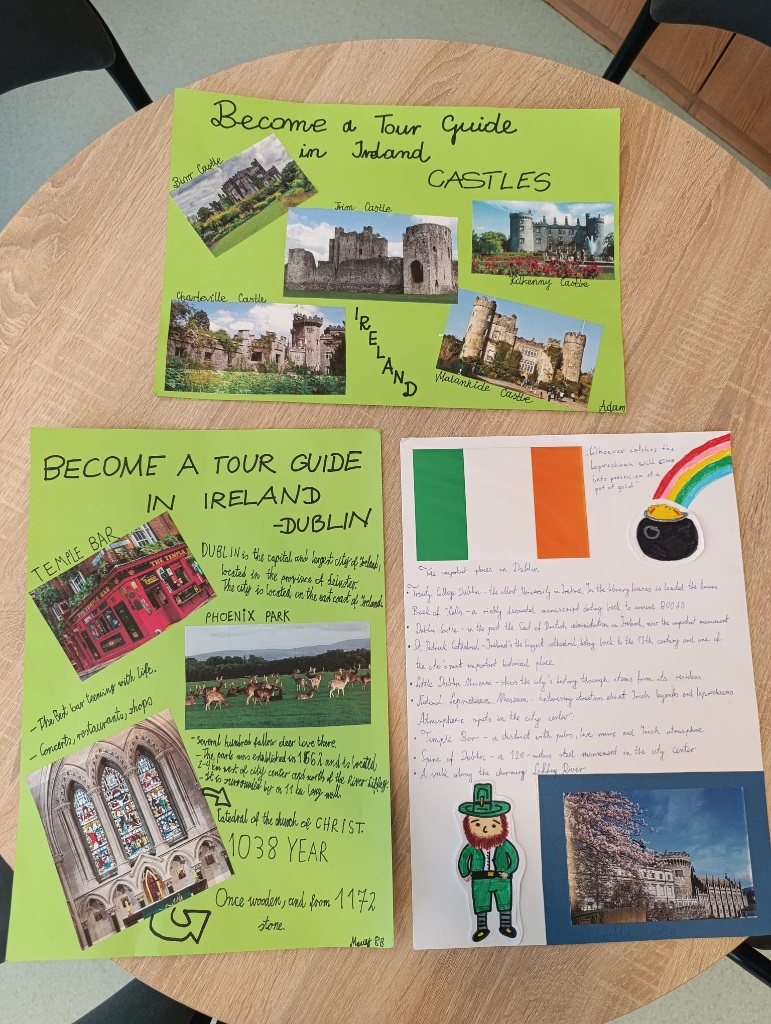 Become a Tour Guide
in Ireland
CASTLES
Birr Castle
Trim Castle
Kilkenny Castle
Charleville Castle
IRELAND
Malahide Castle
Adam
BECOME A TOUR GUIDE
IN IRELAND
-DUBLIN
TEMPLE BAR
DUBLIN is the capital and largest city of Ireland,
located in the province of
The city is located on the east coast of Ireland.
PHOENIX PARK
- The first bar teeming with life.
- Concerts, restaurants, shops
- Several hundred fallow deer love there.
- The park was established in 1662 and is located
2-4 km west of city center and north of the River Liffey.
- it is surrounded by an 11 km long wall.
Catedral of the church of CHRIST.
1038 YEAR
Once wooden, and from 1172
stone.
8B
"Whoever catches the
Leprechaun will come
into possession of a
pot of gold"
The important places in Dublin
Trinity College Dublin - the oldest University in Ireland. In the library houses is located the famous
Book of Kells - a richly decorated manuscript dating back to around 800 AD
Dublin Castle - in the past the Seat of British administration in Ireland, now the important monument
St Patrick Cathedral - Ireland's the biggest cathedral, dating back to the 13th century and one of
the city's most important historical place
Little Dublin Museum - shows the city's history through items from its residents
National Leprechaun Museum - interesting attraction about Irish legends and leprechauns
Atmospheric spots in the city center:
Temple Bar - a district with pubs, live music and Irish atmosphere
Spire of Dublin - a 120-metres steel monument in the city center
A walk along the charming Liffey River